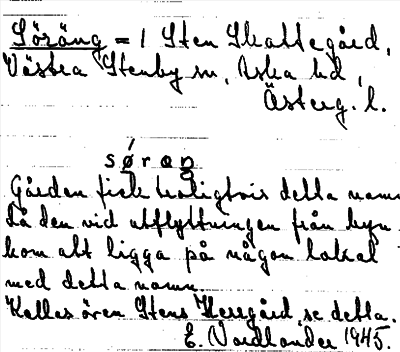 Söräng = 1 Sten Skattegård,
Västra Stenby sn, Aska hd,
Österg. l.
søraŋ
Gården fick troligtvis detta namn
då den vid utflyttningen från byn
kom att ligga på någon lokal
med detta namn.
Kallas även Stens Herrgård, se detta.
E. Nordlander 1945.